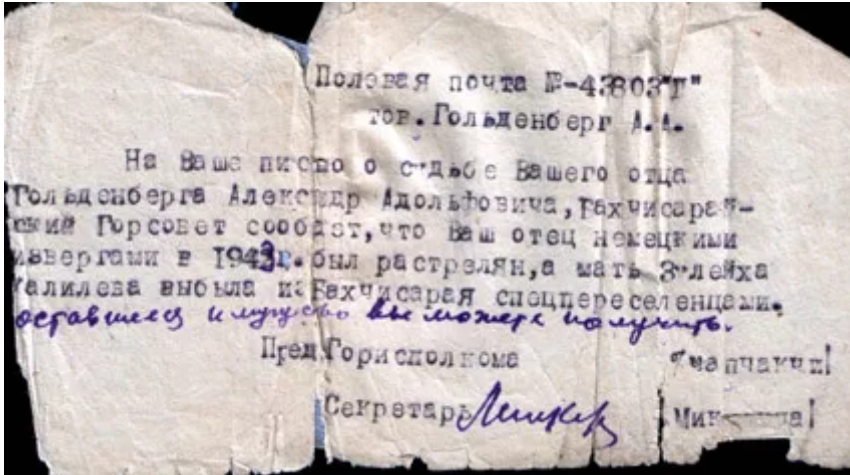 Полевая почта №-43803"Г"
тов.Гольденберг А.А.
На Ваше письмо о судьбе Вашего отца
Гольденберга Александр Адольфовича,Бахчисарай-
ский Горсовет сообщает,что Ваш отец немецкими
извергами в 1943г.был растрелян,а мать Зулейха
Халилева выбыла из Бахчисарая спецпереселенцами.
оставшееся имущество вы можете получить.
Пред.Горисполкома
Секретарь